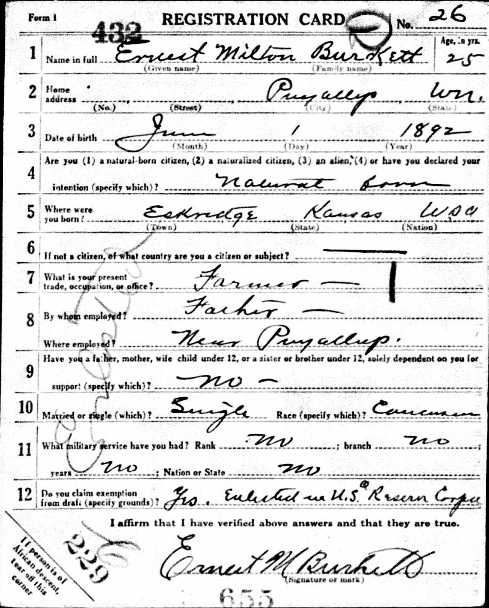 Form 1
432
REGISTRATION CARD
No. 26
1 Name in full Ernest Milton Burkett
(Given name) (Family name)
Age, in yrs.
25
2 Home address Puyallup, Wn.
(No.) (Street) (City) (State)
3 Date of birth June 1 1892
(Month) (Day) (Year)
4 Are you (1) a natural-born citizen, (2) a naturalized citizen, (3) an alien, (4) or have you declared your
intention (specify which)? Natural born
5 Where were you born? Eskridge Kansas USA
(Town) (State) (Nation)
6 If not a citizen, of what country are you a citizen or subject?
7 What is your present trade, occupation, or office? Farmer —
8 By whom employed? Father —
Where employed? Near Puyallup.
9 Have you a father, mother, wife child under 12, or a sister or brother under 12, solely dependent on you for
support (specify which)? No —
10 Married or single (which)? Single Race (specify which)? Caucasian
11 What military service have you had? Rank No ; branch No ;
years No ; Nation or State No
12 Do you claim exemption from draft (specify grounds)? Yes. Enlisted in U.S. Reserve Corps
I affirm that I have verified above answers and that they are true.
Ernest M Burkett
(Signature or mark)
If person is of
African descent,
tear off this
corner
229
655